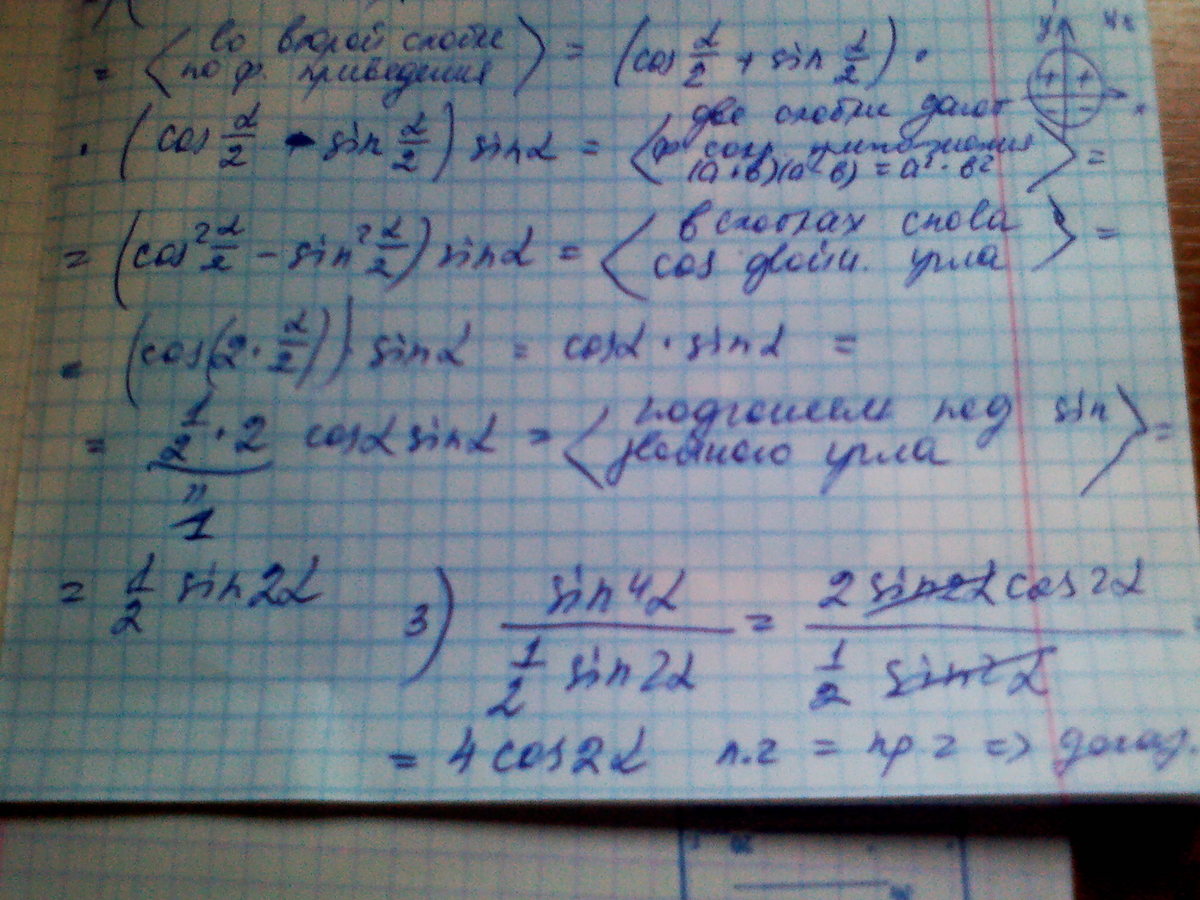 = ⟨ во второй скобке по ф. приведения ⟩ = (cos α/2 + sin α/2) ·
· (cos α/2 - sin α/2) sinα = ⟨ две скобки дают ф. сокр. умножения (a+b)(a-b) = a² - b² ⟩ =
= (cos² α/2 - sin² α/2) sinα = ⟨ в скобках снова cos двойн. угла ⟩ =
= (cos(2 · α/2)) · sinα = cosα · sinα =
= 1/2 · 2 cosα sinα = ⟨ подгоняем под sin двойного угла ⟩ =
1
= 1/2 sin2α
3) sin4α / (1/2 sin2α) = 2 sin2α cos2α / (1/2 sin2α)
= 4 cos2α л.ч = пр ч => доказ.
y
x
+ +
- -